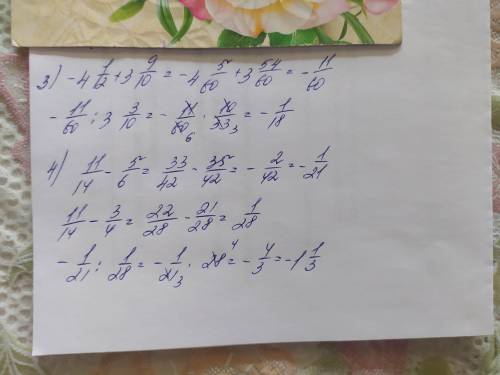 3) -4 1/12 + 3 9/10 = -4 5/60 + 3 54/60 = -11/60
-11/60 : 3 3/10 = -11/60 6 · 10/33 3 = -1/18
4) 11/14 - 5/6 = 33/42 - 35/42 = -2/42 = -1/21
11/14 - 3/4 = 22/28 - 21/28 = 1/28
-1/21 : 1/28 = -1/21 3 · 28 4 = -4/3 = -1 1/3